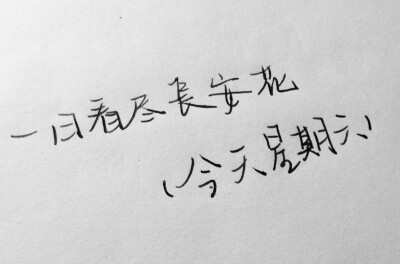 一日看尽长安花
(今天星期六)